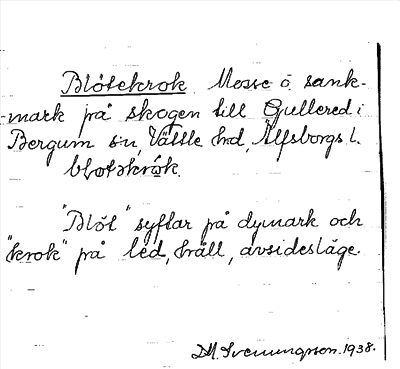 Blötekrok Mosse o. sank-
-mark på skogen till Gullered i
Bergum sn, Vättle hd, Älfsborgs l.
"Blöt" syftar på dymark och
"krok" på led, håll, avsidesläge.
D.M. Svenningson. 1938.